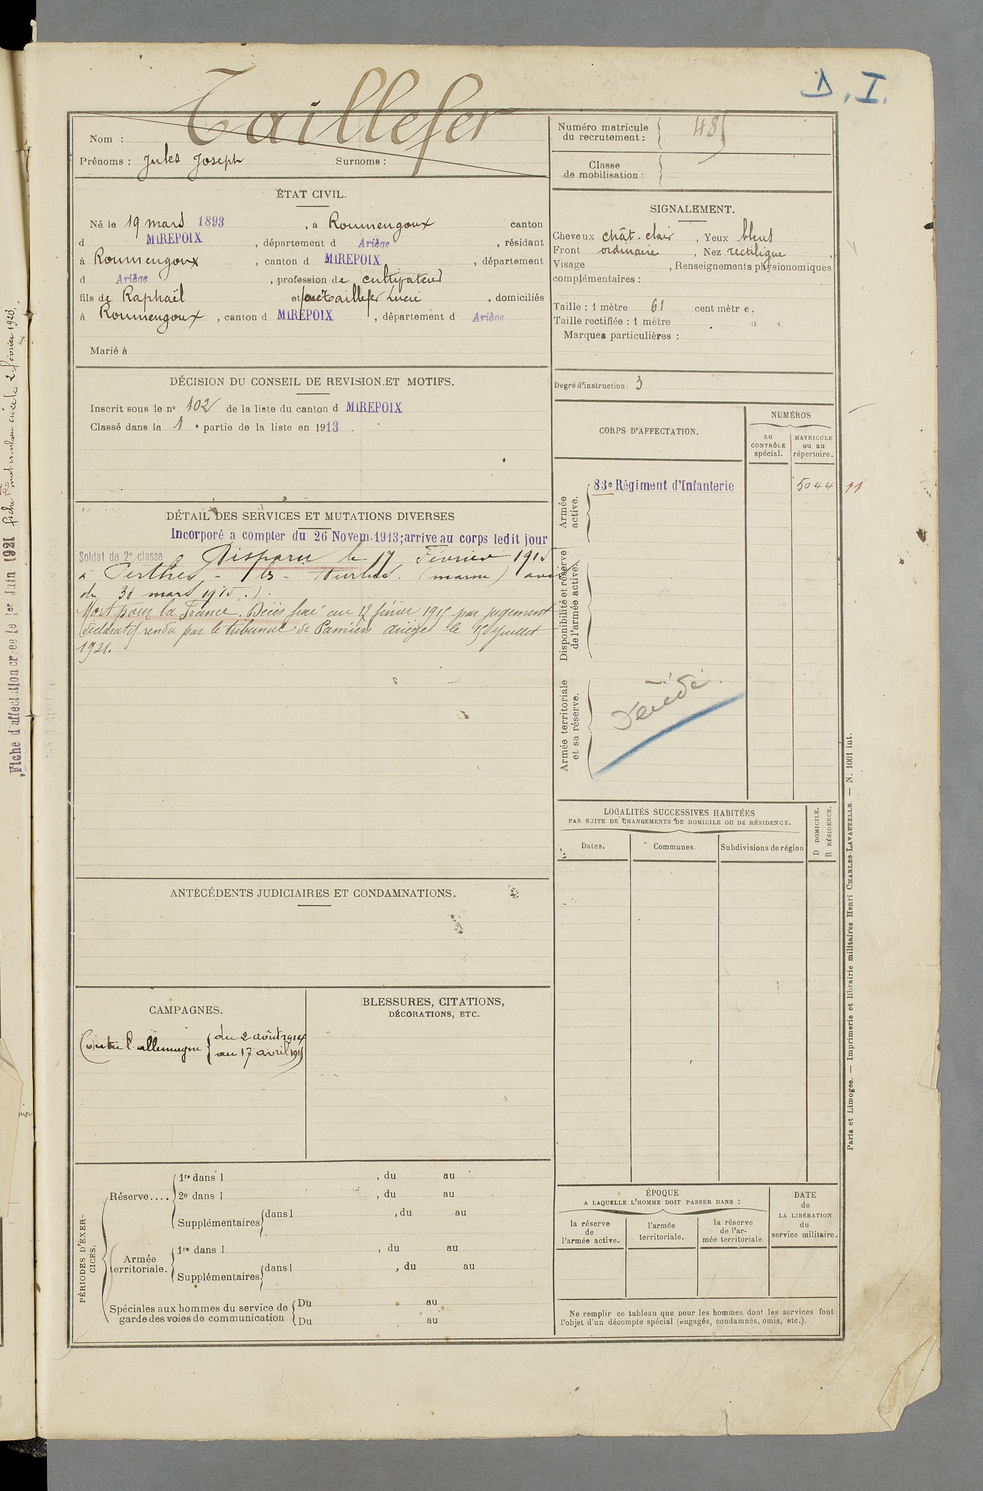 D. I.
Taillefer
Nom :
Prénoms : Jules Joseph Surnoms :
Numéro matricule du recrutement : 485
Classe de mobilisation :
ÉTAT CIVIL.
Né le 19 mars 1893, à Roumengoux canton
d MIREPOIX, département d Ariège, résidant
à Roumengoux, canton d MIREPOIX, département
d Ariège, profession de cultivateur
fils de Raphaël et Taillefer, domiciliés
à Roumengoux, canton d MIREPOIX, département d Ariège
Marié à
SIGNALEMENT.
Cheveux chât. clair, Yeux bleus
Front ordinaire, Nez rectiligne
Visage , Renseignements physionomiques
complémentaires :
Taille : 1 mètre 61 centimètre.
Taille rectifiée : 1 mètre
Marques particulières :
Degré d'instruction : 3
DÉCISION DU CONSEIL DE REVISION ET MOTIFS.
Inscrit sous le n° 102 de la liste du canton d MIREPOIX
Classé dans la 1 e partie de la liste en 1913.
DÉTAIL DES SERVICES ET MUTATIONS DIVERSES
Incorporé a compter du 26 Novem. 1913; arrive au corps ledit jour
Soldat de 2e classe Disparu le 17 Février 1915
à Perthes-les-Hurlus (marne) avis
du 30 mars 1915.
Mort pour la France. Décès fixé au 17 février 1915 par jugement
déclaratif rendu par le tribunal de Pamiers Ariège le juillet
1921.
CORPS D'AFFECTATION.
NUMÉROS
au CONTRÔLE spécial.
MATRICULE ou au répertoire.
Armée active.
83e Régiment d'Infanterie 5044 11
Disponibilité et réserve de l'armée active.
Armée territoriale et sa réserve.
Décédé
LOCALITÉS SUCCESSIVES HABITÉES
PAR SUITE DE CHANGEMENTS DE DOMICILE OU DE RÉSIDENCE.
D DOMICILE.
R RÉSIDENCE.
Dates. Communes. Subdivisions de région
ANTÉCÉDENTS JUDICIAIRES ET CONDAMNATIONS.
CAMPAGNES.
Contre l'allemagne { du 2 août 1914
au 17 avril 1915
BLESSURES, CITATIONS,
DÉCORATIONS, ETC.
PÉRIODES D'EXERCICES.
Réserve.... 1re dans l , du au
2e dans l , du au
Supplémentaires dans l , du au
Armée territoriale. 1re dans l , du au
Supplémentaires dans l , du au
Spéciales aux hommes du service de garde des voies de communication Du au
Du au
ÉPOQUE
A LAQUELLE L'HOMME DOIT PASSER DANS :
la réserve de l'armée active.
l'armée territoriale.
la réserve de l'armée territoriale
DATE de LA LIBÉRATION du service militaire.
Ne remplir ce tableau que pour les hommes dont les services font
l'objet d'un décompte spécial (engagés, condamnés, omis, etc.).
Paris et Limoges. — Imprimerie et librairie militaires Henri CHARLES-LAVAUZELLE. — N. 1001 int.
Fiche d'affectation créée le 1er Juin 1921